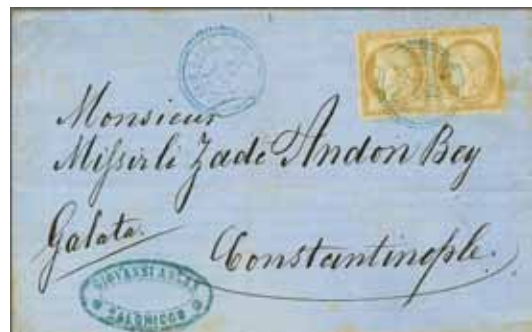 Monsieur
Missirli Zadé Andon Bey
Galata.
Constantinople.
GIOVANNI
SALONICCO